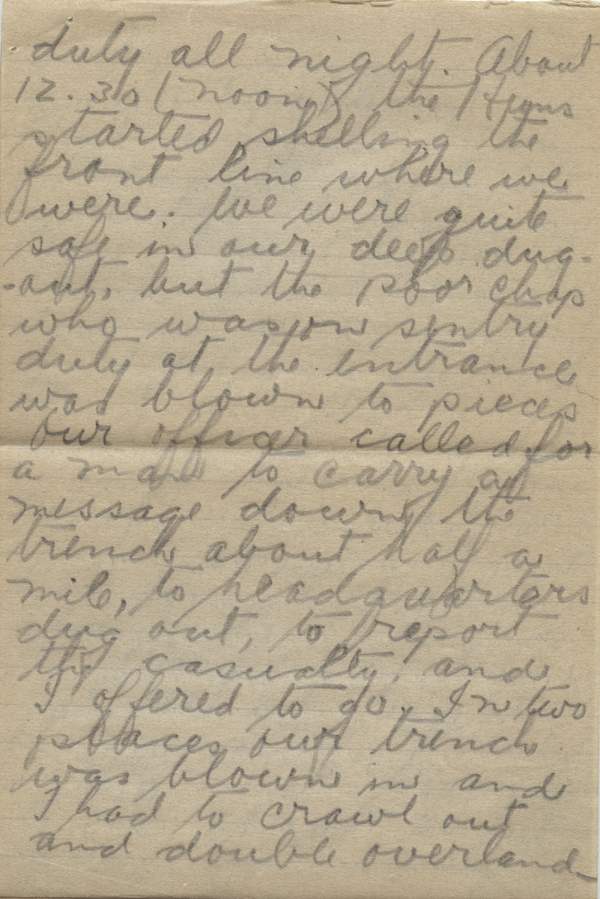 duty all night. About
12.30 (noon) the Huns
started shelling the
front line where we
were. We were quite
safe in our deep dug-
-out, but the poor chap
who was on sentry
duty at the entrance
was blown to pieces
Our officer called for
a man to carry a
message down the
trench about half a
mile, to headquarters
dug out, to report
the casualty, and
I offered to go. In two
places our trench
was blown in and
I had to crawl out
and double overland